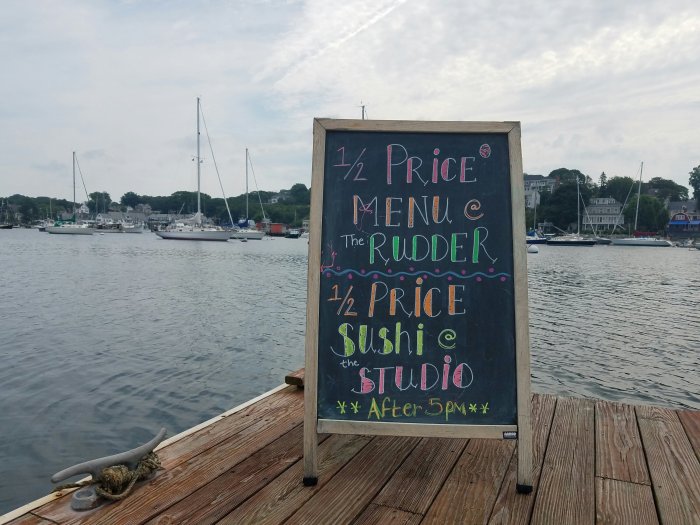 1/2 PRiCE
MENU @
The RUDDER
1/2 PRiCE
SUSHi @
the STUDiO
** After 5pm **